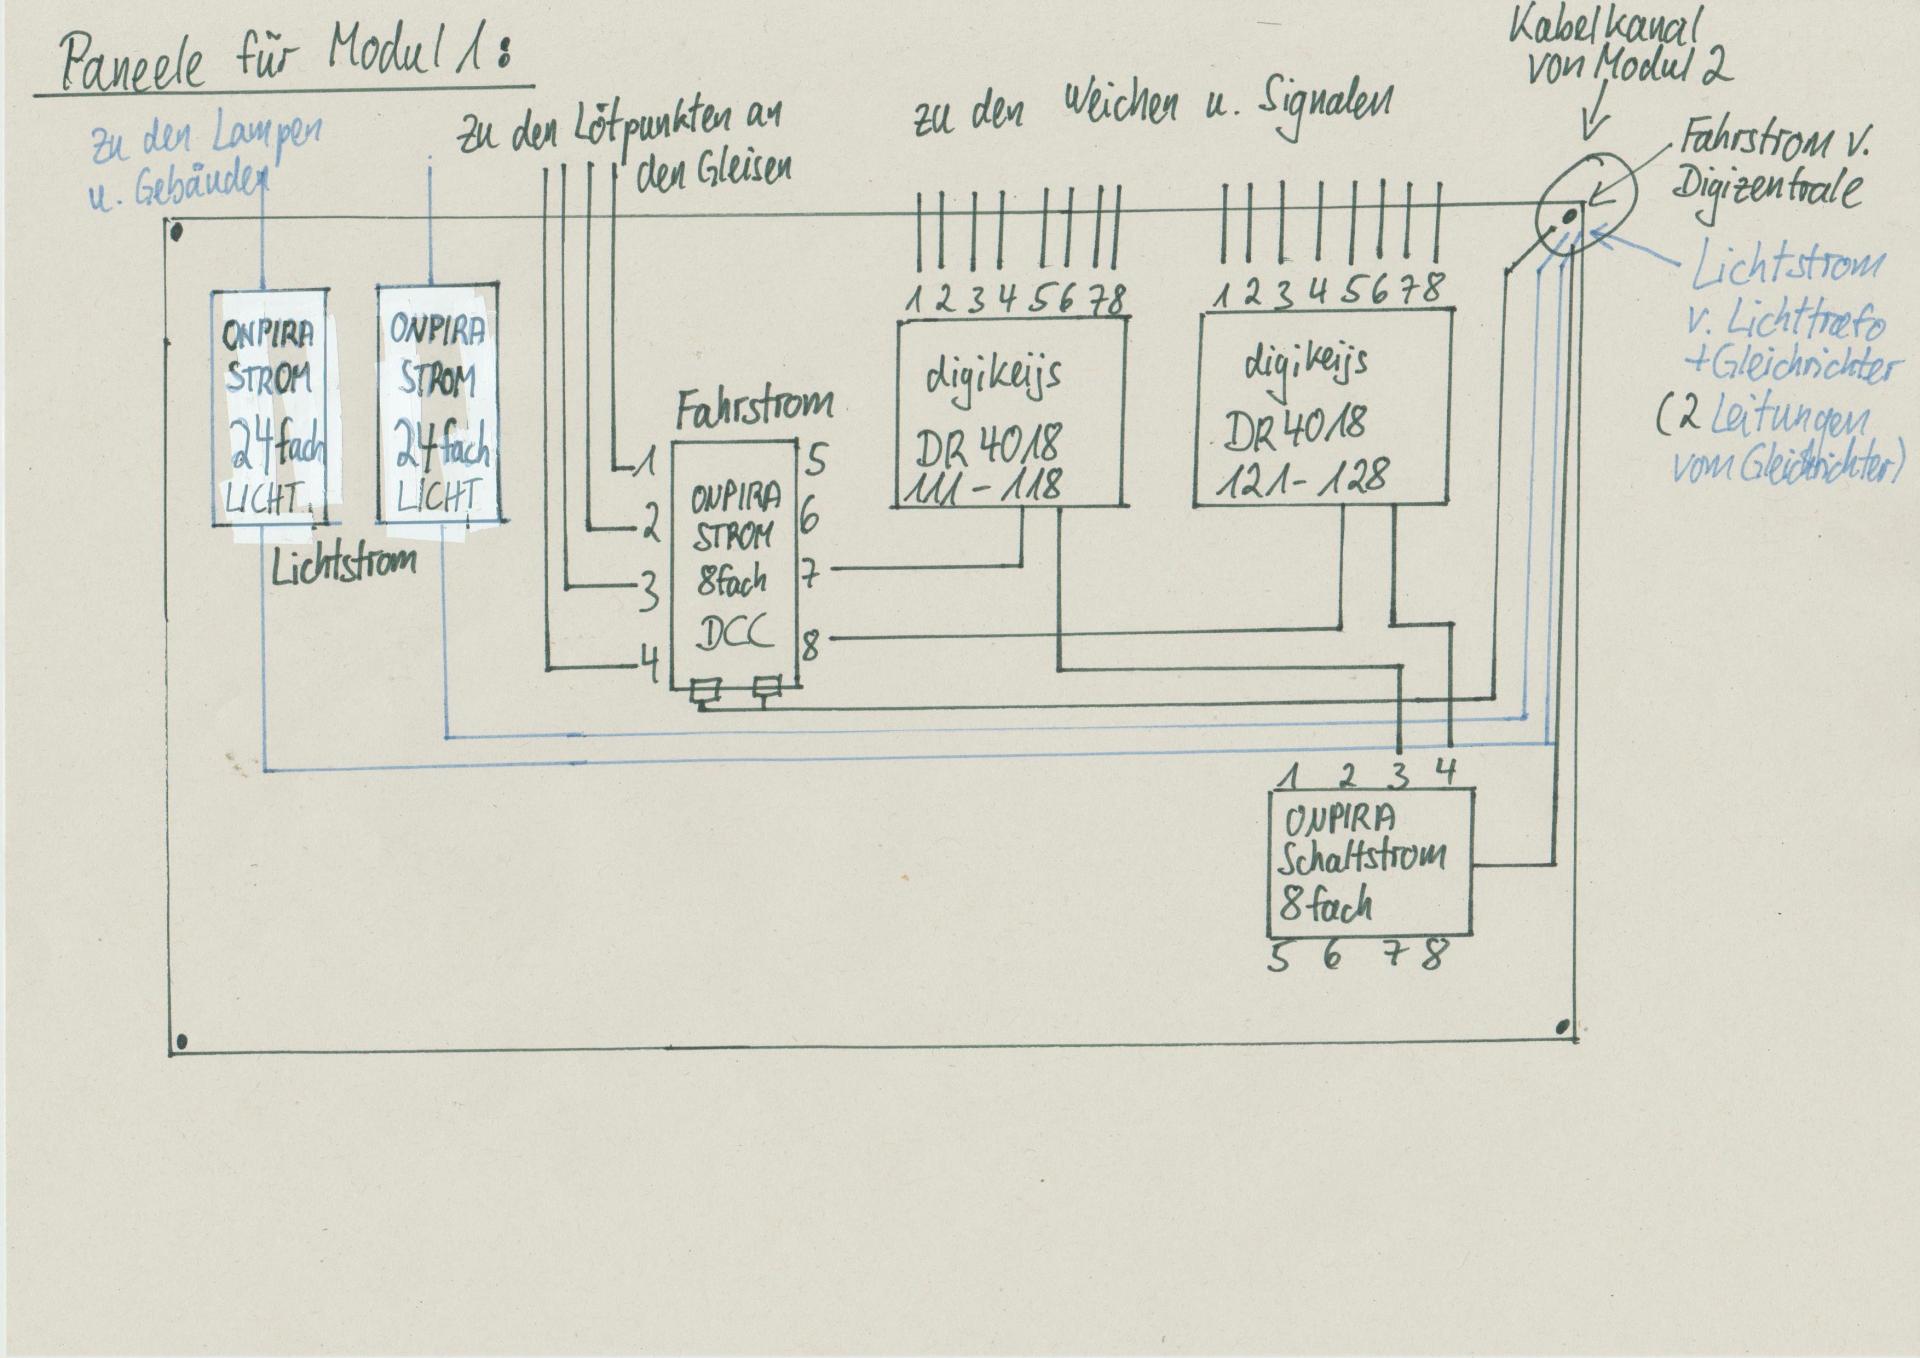 Paneele für Modul 1:
zu den Lampen
u. Gebäuden
Zu den Lötpunkten an
den Gleisen
zu den Weichen u. Signalen
Kabelkanal
von Modul 2
Fahrstrom v.
Digizentrale
Lichtstrom
v. Lichttrafo
+Gleichrichter
(2 Leitungen
vom Gleichrichter)
ONPIRA
STROM
24fach
LICHT
ONPIRA
STROM
24fach
LICHT
Lichtstrom
Fahrstrom
1
2
3
4
ONPIRA
STROM
8fach
DCC
5
6
7
8
1 2 3 4 5 6 7 8
digikeijs
DR 4018
111 - 118
1 2 3 4 5 6 7 8
digikeijs
DR 4018
121 - 128
1 2 3 4
ONPIRA
Schaltstrom
8fach
5 6 7 8